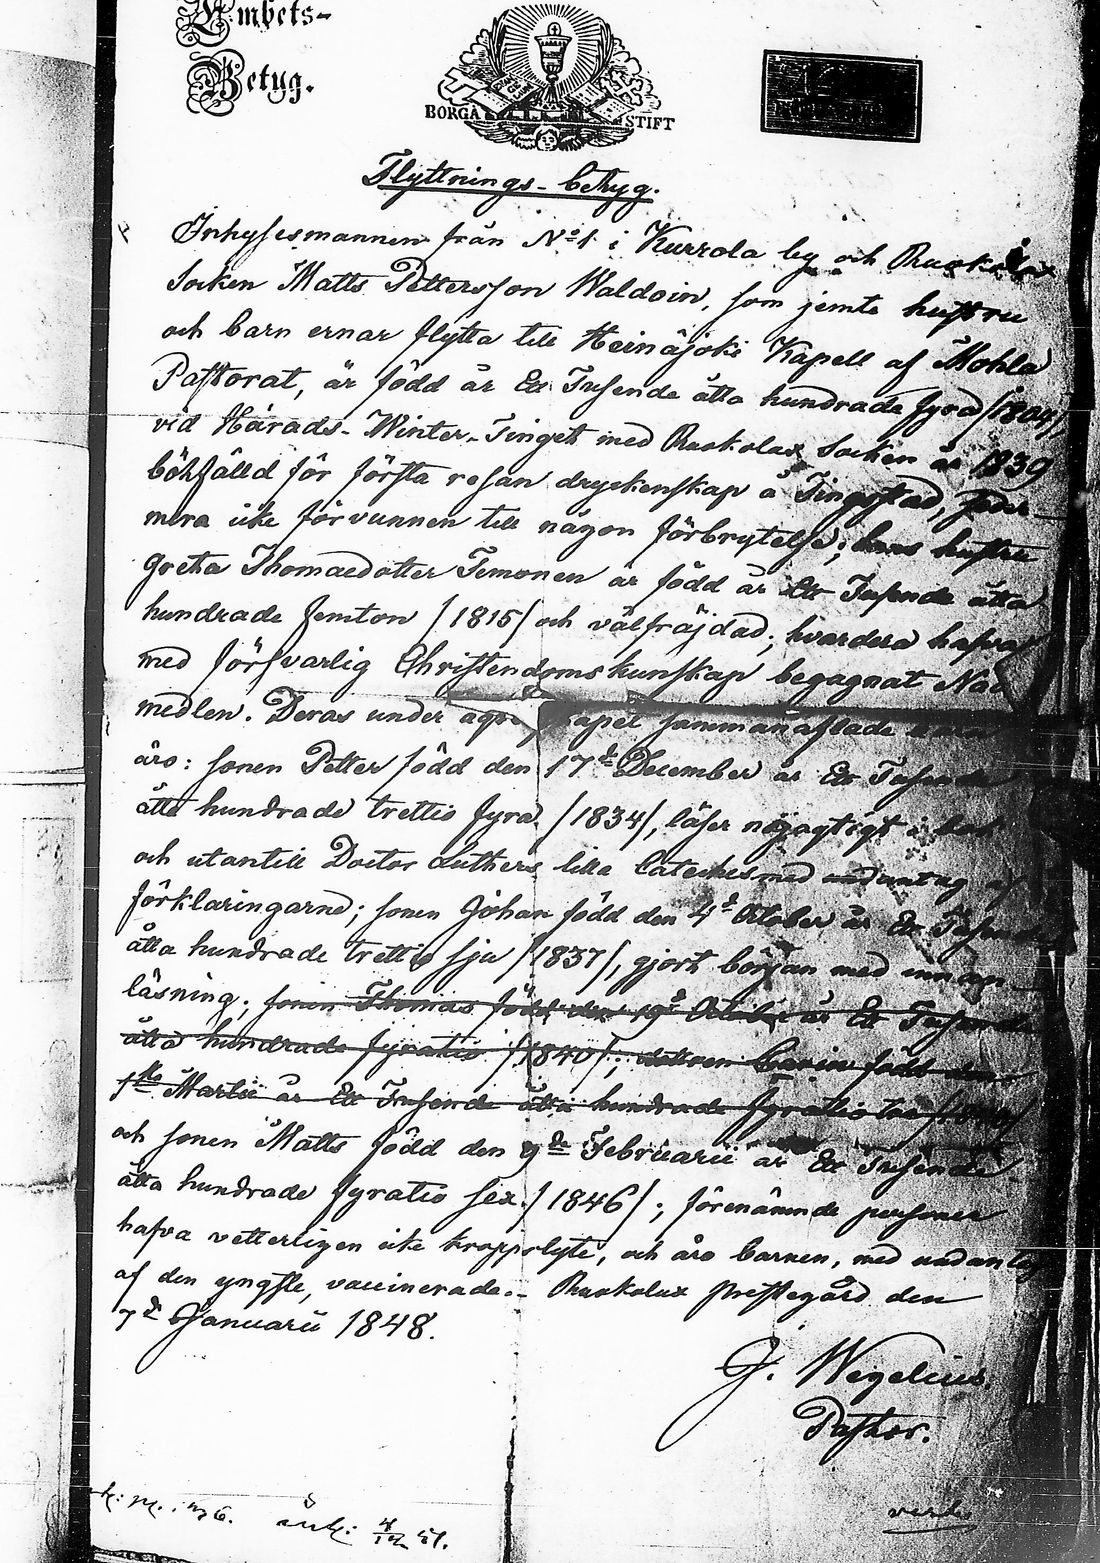 Embets-
Betyg.
BORGÅ STIFT
Flyttnings-betyg.
Inhysesmannen från No 1 i Kurrola by och Ruokolax
Socken Matts Pettersson Waldoin, som jemte hustru
och barn ernar flytta till Heinäjoki Kapell af Mohla
Pastorat, är född år Ett Tusende åtta hundrade fyra /1804/,
vid Härads-Winter-Tinget med Ruokolax Socken år 1839
bötfälld för första resan dryckenskap å Tingsstad, seder-
mera icke förvunnen till någon förbrytelse; hans hustru
Greta Thomaedotter Temonen är född år Ett Tusende åtta
hundrade femton /1815/ och välfräjdad; hvardera hafva
med försvarlig Christendomskunskap begagnat Nåd
medlen. Deras under sammanaflade barn
äro: sonen Petter född den 17de December år Ett Tusende
åtta hundrade trettio fyra /1834/, läser nöjagtigt i bok
och utantill Doctor Luthers lilla Cateches med undantag af
förklaringarne; sonen Johan född den 4de October år Ett Tusende
åtta hundrade trettio sju /1837/, gjort början med innan-
läsning; sonen Thomas född den 19de October år Ett Tusende
åtta hundrade fyratio /1840/; dottren Carin född den
1ste Martii år Ett Tusende åtta hundrade fyratio
och sonen Matts född den 9de Februarii år Ett Tusende
åtta hundrade fyratio sex /1846/; förenämnde personer
hafva vetterligen icke kroppslyte, och äro barnen, med undantag
af den yngste, vaccinerade.- Ruokolax prestegård den
7de Januarii 1848.
J. Wegelius.
Pastor.